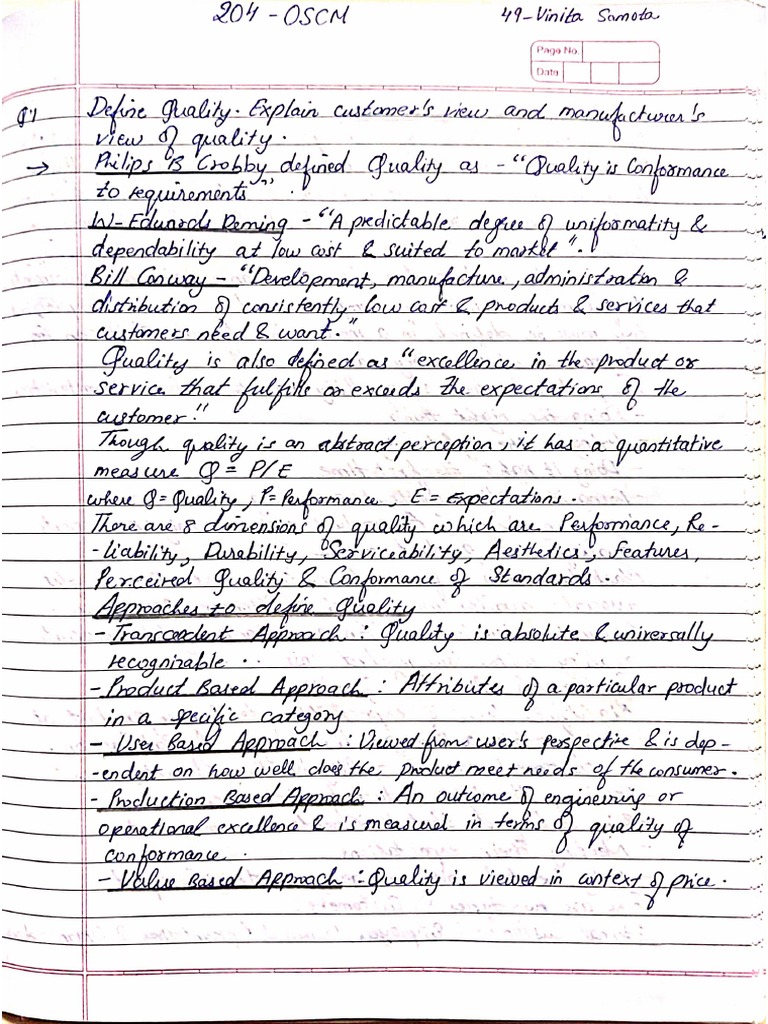 204 - OSCM
49-Vinita Samota
Page No.
Date
Q1 Define Quality. Explain customer's view and manufacturer's
view of quality.
→ Philips B Crobby defined Quality as - "Quality is Conformance
to requirements".
W- Edwards Deming - "A predictable degree of uniformatity &
dependability at low cost & suited to market".
Bill Conway - "Development, manufacture, administration &
distribution of consistently low cost & products & services that
customers need & want."
Quality is also defined as "excellence in the product or
service that fulfills or exceeds the expectations of the
customer."
Though quality is an abstract perception, it has a quantitative
measure Q = P/E
where Q = Quality, P = Performance, E = Expectations.
There are 8 dimensions of quality which are Performance, Re-
-liability, Durability, Serviceability, Aesthetics, Features,
Perceived Quality & Conformance of Standards.
Approaches to define Quality
- Transcendent Approach : Quality is absolute & universally
recognizable.
- Product Based Approach : Attributes of a particular product
in a specific category
- User Based Approach : Viewed from user's perspective & is dep-
-endent on how well does the product meet needs of the consumer.
- Production Based Approach : An outcome of engineering or
operational excellence & is measured in terms of quality of
conformance.
- Value Based Approach : Quality is viewed in context of price.